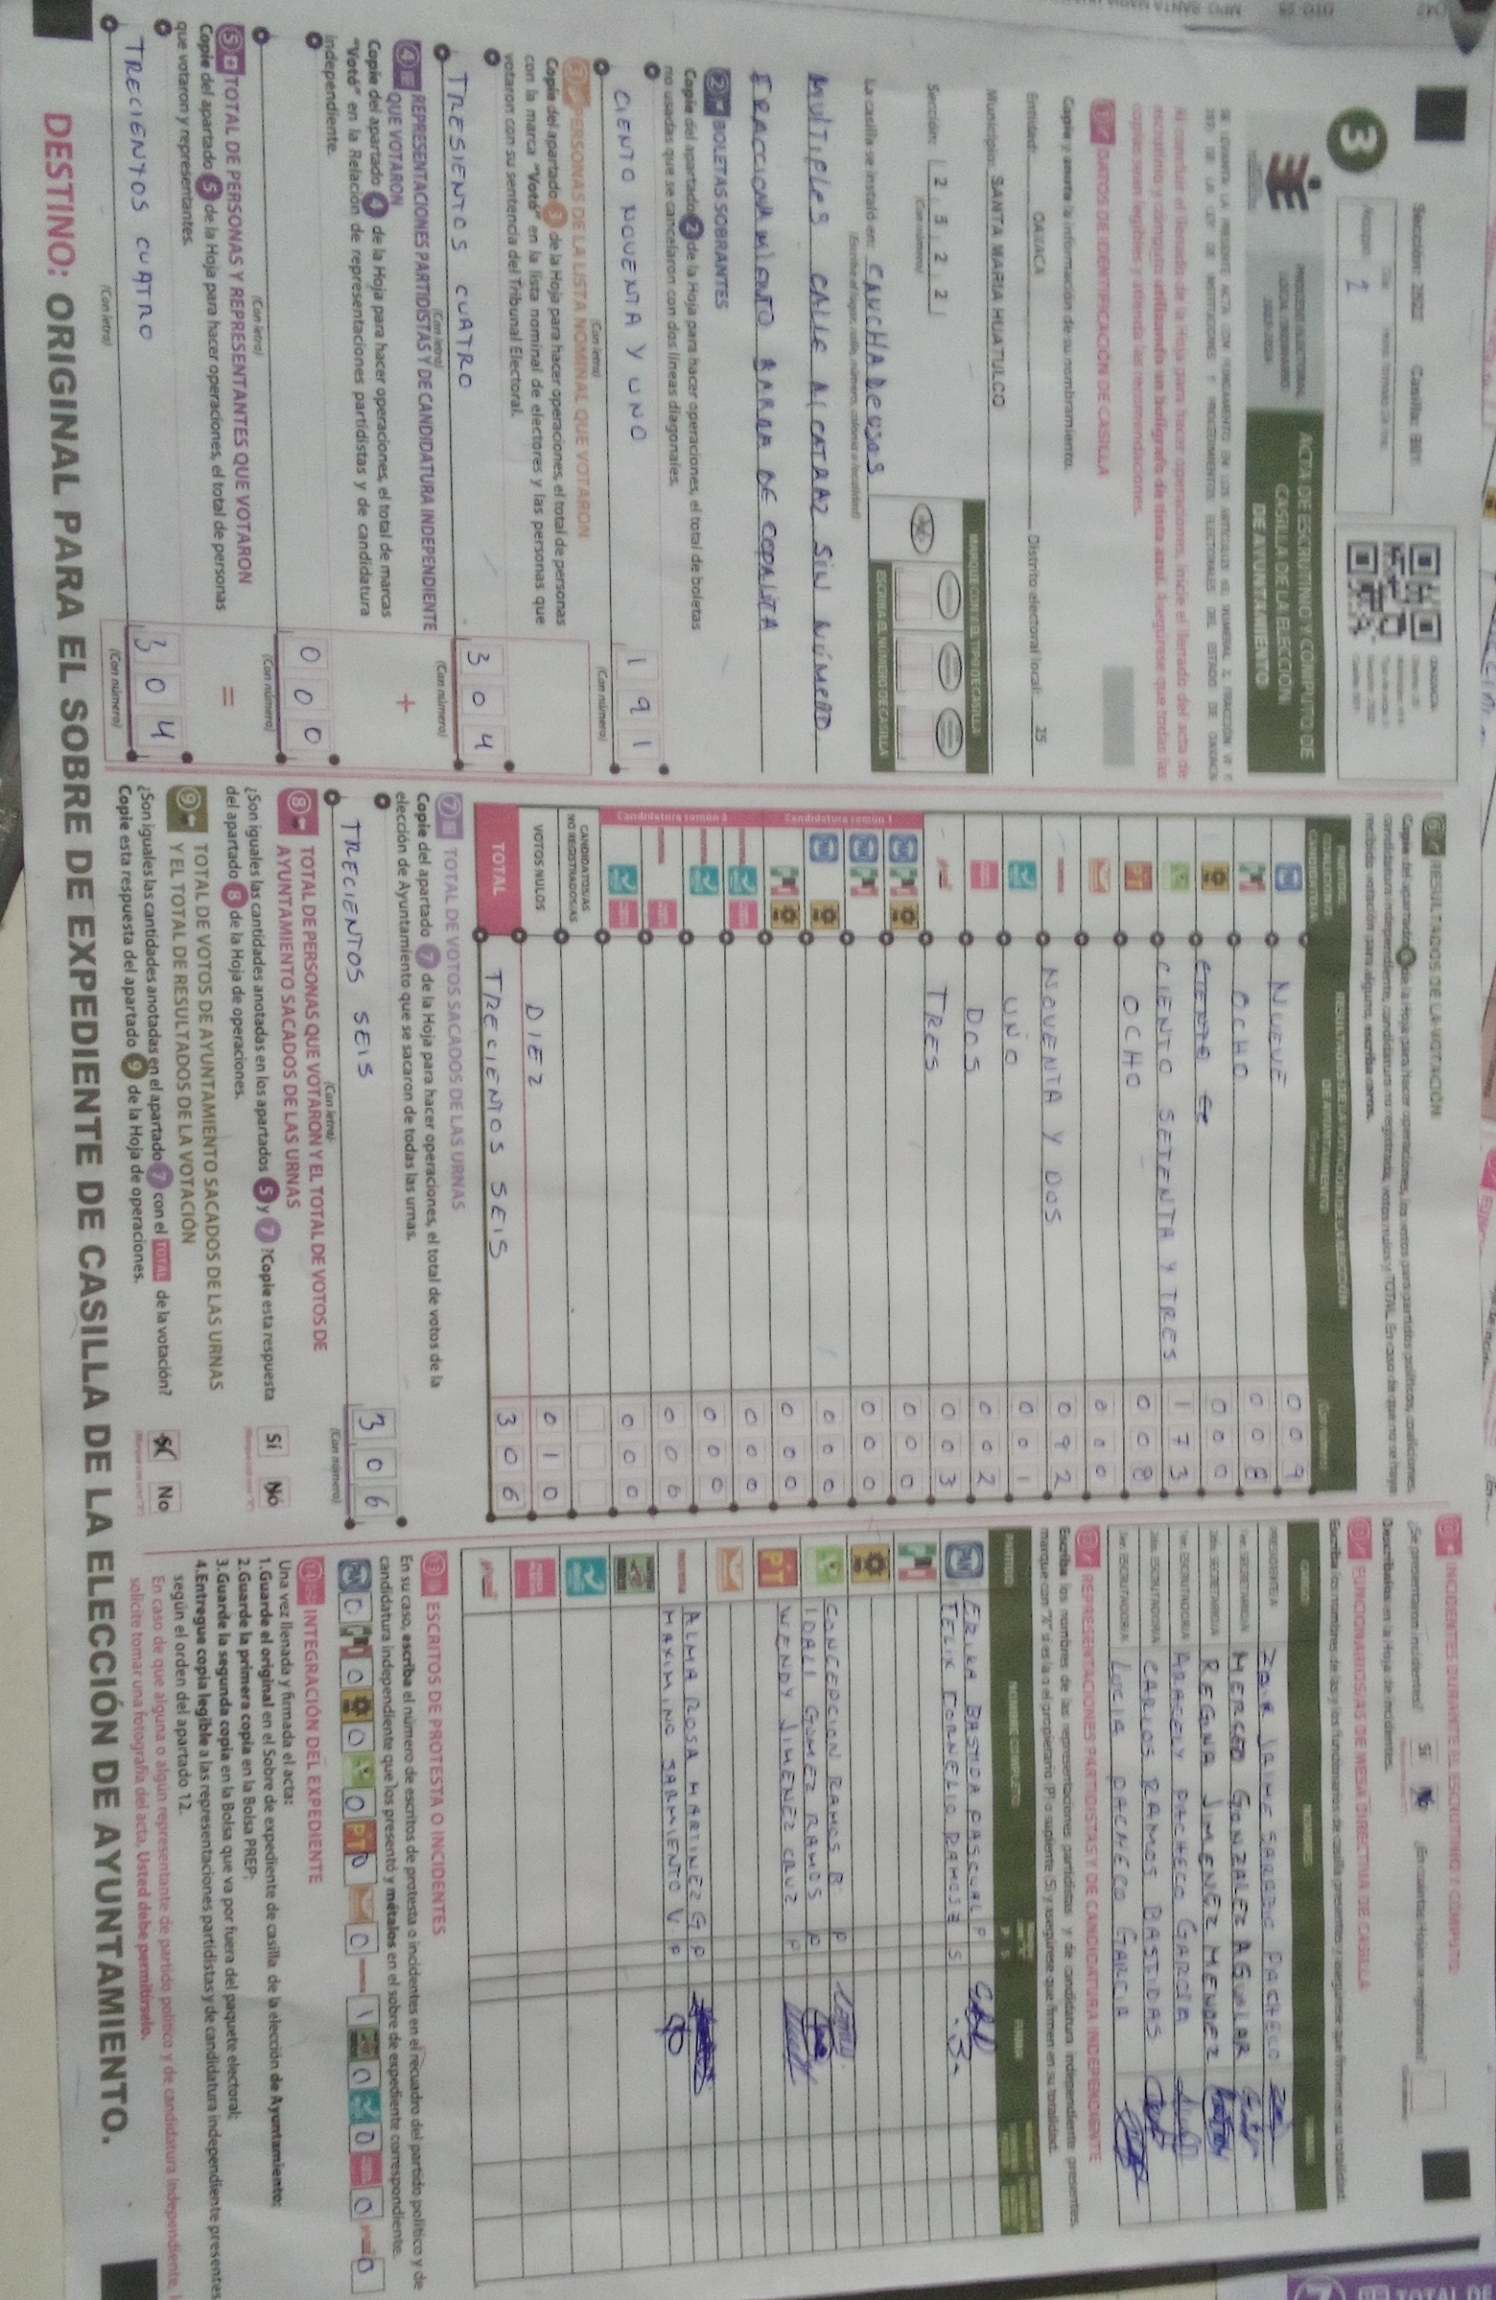 Sección: 2522 Casilla: B01
3
2
PROCESO ELECTORAL
ACTA DE ESCRUTINIO Y CÓMPUTO DE
CASILLA DE LA ELECCIÓN
DE AYUNTAMIENTO
Al concluir el llenado de la Hoja para hacer operaciones, inicie el llenado del acta de
escrutinio y cómputo utilizando un bolígrafo de tinta azul. Asegúrese que todas las
copias sean legibles y atienda las recomendaciones.
1 DATOS DE IDENTIFICACIÓN DE CASILLA
Copie y anote la información de su nombramiento.
Entidad: OAXACA Distrito electoral local: 25
Municipio: SANTA MARIA HUATULCO
Sección: 2 5 2 2
(Con número)
MARQUE CON X EL TIPO DE CASILLA
ESCRIBA EL NÚMERO DE CASILLA
La casilla se instaló en: CANCHA DE USOS
(Escriba el lugar, calle, número, colonia o localidad)
MULTIPLES CALLE ALCATRAZ SIN NÚMERO
FRACCIONAMIENTO BARRA DE COPALITA
2 BOLETAS SOBRANTES
Copie del apartado 2 de la Hoja para hacer operaciones, el total de boletas
no usadas que se cancelaron con dos líneas diagonales.
CIENTO NOVENTA Y UNO 1 9 1
(Con letra) (Con número)
3 PERSONAS DE LA LISTA NOMINAL QUE VOTARON
Copie del apartado 3 de la Hoja para hacer operaciones, el total de personas
con la marca "Votó" en la lista nominal de electores y las personas que
votaron con su sentencia del Tribunal Electoral.
TRESIENTOS CUATRO 3 0 4
(Con letra) (Con número)
4 REPRESENTACIONES PARTIDISTAS Y DE CANDIDATURA INDEPENDIENTE
QUE VOTARON
+
Copie del apartado 4 de la Hoja para hacer operaciones, el total de marcas
"Votó" en la Relación de representaciones partidistas y de candidatura
independiente.
0 0 0
(Con letra) (Con número)
5 TOTAL DE PERSONAS Y REPRESENTANTES QUE VOTARON
=
Copie del apartado 5 de la Hoja para hacer operaciones, el total de personas
que votaron y representantes.
TRECIENTOS CUATRO 3 0 4
(Con letra) (Con número)
RESULTADOS DE LA VOTACIÓN
RESULTADOS DE LA VOTACIÓN DE LA ELECCIÓN
DE AYUNTAMIENTO
PAN NUEVE 0 0 9
OCHO 0 0 8
0 0 0
CIENTO SETENTA Y TRES 1 7 3
PT OCHO 0 0 8
0 0 0
morena NOVENTA Y DOS 0 9 2
UNO 0 0 1
DOS 0 0 2
TRES 0 0 3
Candidatura común 1
0 0 0
0 0 0
0 0 0
0 0 0
Candidatura común 2
0 0 0
0 0 0
0 0 0
0 0 0
CANDIDATOS/AS
NO REGISTRADOS/AS
VOTOS NULOS DIEZ 0 1 0
TOTAL TRECIENTOS SEIS 3 0 6
7 TOTAL DE VOTOS SACADOS DE LAS URNAS
Copie del apartado 7 de la Hoja para hacer operaciones, el total de votos de la
elección de Ayuntamiento que se sacaron de todas las urnas.
TRECIENTOS SEIS 3 0 6
(Con letra) (Con número)
8 TOTAL DE PERSONAS QUE VOTARON Y EL TOTAL DE VOTOS DE
AYUNTAMIENTO SACADOS DE LAS URNAS
¿Son iguales las cantidades anotadas en los apartados 5 y 7 ?Copie esta respuesta
del apartado 8 de la Hoja de operaciones.
Sí No
9 TOTAL DE VOTOS DE AYUNTAMIENTO SACADOS DE LAS URNAS
Y EL TOTAL DE RESULTADOS DE LA VOTACIÓN
¿Son iguales las cantidades anotadas en el apartado 7 con el TOTAL de la votación?
Copie esta respuesta del apartado 9 de la Hoja de operaciones.
Sí No
INCIDENTES DURANTE EL ESCRUTINIO Y CÓMPUTO
¿Se presentaron incidentes? Sí No
Descríbalos en la Hoja de incidentes.
FUNCIONARIOS/AS DE MESA DIRECTIVA DE CASILLA
PRESIDENTE/A ZOIR JAIME SARABIO PACHECO
1er. SECRETARIO/A MERCED GONZALEZ AGUILAR
2do. SECRETARIO/A REGINA JIMENEZ MENDEZ
1er. ESCRUTADOR/A ARACELY PACHECO GARCÍA
2do. ESCRUTADOR/A CARLOS RAMOS BASTIDAS
3er. ESCRUTADOR/A LUCIA PACHECO GARCIA
REPRESENTACIONES PARTIDISTAS Y DE CANDIDATURA INDEPENDIENTE
Escriba los nombres de las representaciones partidistas y de candidatura independiente presentes,
marque con "X" si es la o el propietario (P) o suplente (S) y asegúrese que firmen en su totalidad.
PARTIDO NOMBRE COMPLETO FIRMA
PAN ERIKA BASTIDA PASCUAL P
FELIX CORNELIO RAMOSZ S
CONCEPCION RAMOS R. P
IDALI GOMEZ RAMOS P
PT WENDY JIMENEZ CRUZ P
morena ALMA ROSA MARTINEZ G P
MAXIMINO SARMIENTO V. P
13 ESCRITOS DE PROTESTA O INCIDENTES
En su caso, escriba el número de escritos de protesta o incidentes en el recuadro del partido político y de
candidatura independiente que los presentó y métalos en el sobre de expediente correspondiente.
0 0 0 0 PT 0 0 1 0 0 0 0
14 INTEGRACIÓN DEL EXPEDIENTE
Una vez llenada y firmada el acta:
1.Guarde el original en el Sobre de expediente de casilla de la elección de Ayuntamiento;
2.Guarde la primera copia en la Bolsa PREP;
3.Guarde la segunda copia en la Bolsa que va por fuera del paquete electoral;
4.Entregue copia legible a las representaciones partidistas y de candidatura independiente presentes
según el orden del apartado 12.
En caso de que alguna o algún representante de partido político y de candidatura independiente,
solicite tomar una fotografía del acta, Usted debe permitírselo.
DESTINO: ORIGINAL PARA EL SOBRE DE EXPEDIENTE DE CASILLA DE LA ELECCIÓN DE AYUNTAMIENTO.